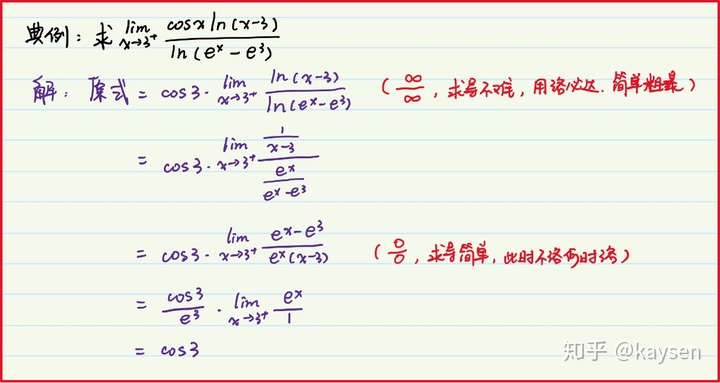 典例: 求 lim x→3⁺ cosx ln(x-3) / ln(eˣ-e³)
解: 原式 = cos3 · lim x→3⁺ ln(x-3) / ln(eˣ-e³) (∞/∞, 求导不难, 用洛必达. 简单粗暴)
= cos3 · lim x→3⁺ (1/(x-3)) / (eˣ/(eˣ-e³))
= cos3 · lim x→3⁺ (eˣ-e³) / (eˣ(x-3)) (0/0, 求导简单, 此时不洛何时洛)
= cos3/e³ · lim x→3⁺ eˣ/1
= cos3
知乎 @kaysen